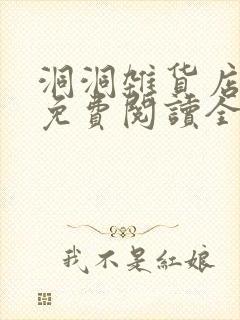 洞洞雜貨店
免費閱讀全
我不是紅娘